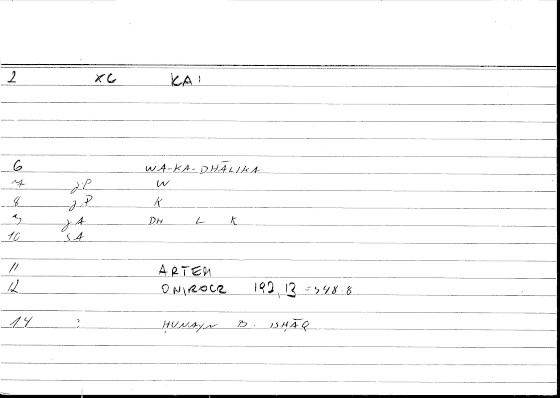 2 XC KAI
6 WA-KA-DHĀLIKA
7 JP W
8 JP K
9 JA DH L K
10 SA
11 ARTEM
12 ONIROCR 192,13 = 348.8
14 : ḤUNAYN B. ISḤĀQ